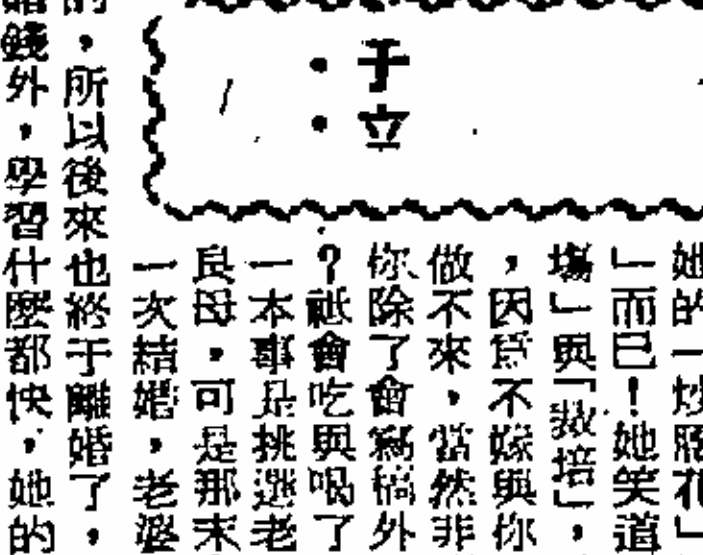 ・于立・
她的一炒腰花」
」而已!她笑道
塲」與「栽培」,
,因爲不嫁與你
做不來,當然非
你除了會寫稿外
?祗會吃與喝了
一本事是挑選老
良母,可是那末
一次結婚,老婆
的,所以後來也終于離婚了,
婚錢外,學習什麼都快,她的